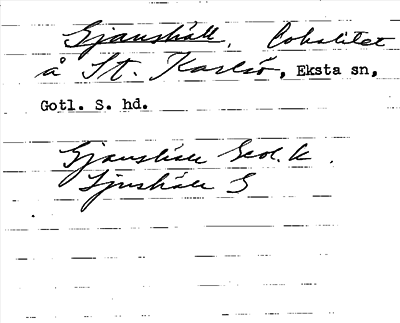 Gjaushäll, Lokalitet
å St. Karlsö, Eksta sn,
Gotl. S. hd.
Gjaushäll Geol. k.
Ljushäll G